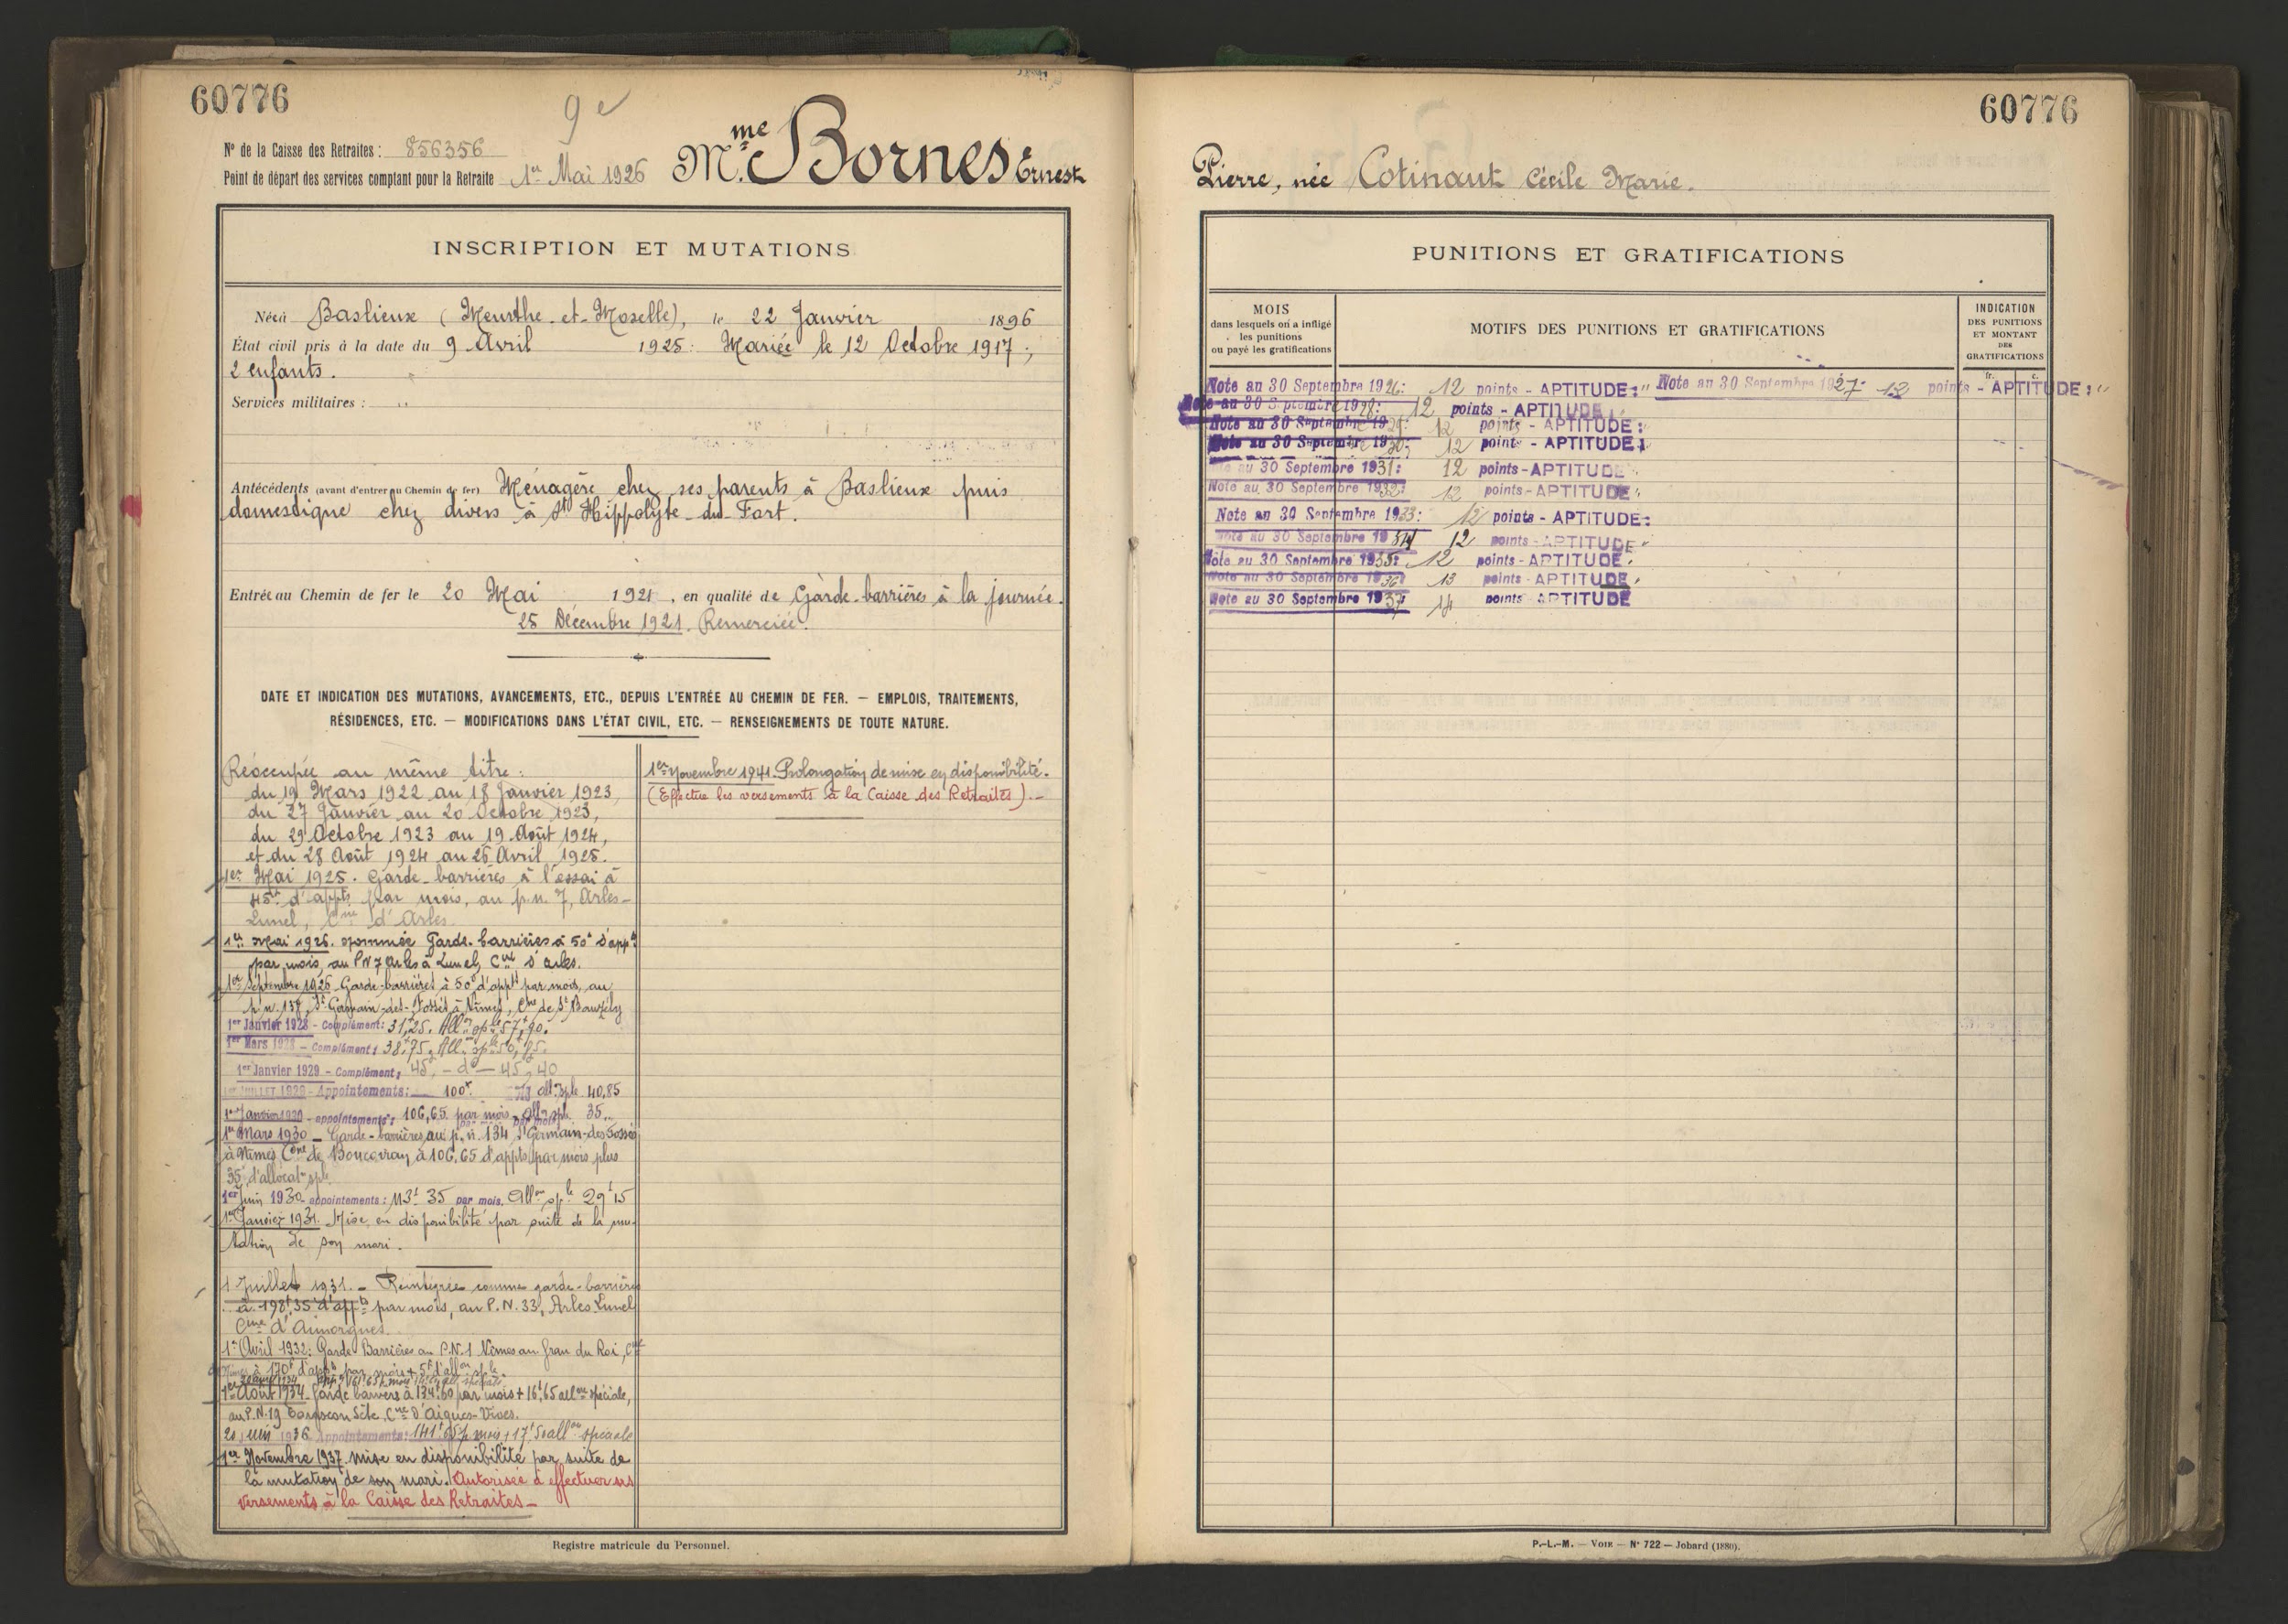 60776
9e
N° de la Caisse des Retraites : 856356
Point de départ des services comptant pour la Retraite 1er Mai 1926
Mme Bornes Ernest
INSCRIPTION ET MUTATIONS
Née à Baslieux (Meurthe-et-Moselle), le 22 Janvier 1896
État civil pris à la date du 9 Avril 1925: Mariée le 12 Octobre 1917 ;
2 enfants.
Services militaires : "
Antécédents (avant d'entrer au Chemin de fer) Ménagère chez ses parents à Baslieux puis
domestique chez divers à St Hippolyte-du-Fort.
Entrée au Chemin de fer le 20 Mai 1921, en qualité de Garde-barrières à la journée.
25 Décembre 1921. Remerciée.
DATE ET INDICATION DES MUTATIONS, AVANCEMENTS, ETC., DEPUIS L'ENTRÉE AU CHEMIN DE FER. — EMPLOIS, TRAITEMENTS,
RÉSIDENCES, ETC. — MODIFICATIONS DANS L'ÉTAT CIVIL, ETC. — RENSEIGNEMENTS DE TOUTE NATURE.
Réoccupée au même titre :
du 19 Mars 1922 au 18 Janvier 1923,
du 27 Janvier au 20 Octobre 1923,
du 29 Octobre 1923 au 19 Août 1924,
et du 28 Août 1924 au 26 Avril 1925.
1er Mai 1925. Garde-barrières à l'essai à
45f d'appts par mois, au p.n. 7, Arles-
Lunel, Cne d'Arles.
1er Mai 1926. nommée Garde-barrières à 50f d'appts
par mois, au PN 7 Arles à Lunel, Cne d'Arles.
1er Septembre 1926. Garde-barrières à 50f d'appts par mois, au
p.n. 137, St Germain-des-Fossés à Nîmes, Cne de St Bauzély
1er Janvier 1928 - Complément: 31f,25. Allon sple 57f,90.
1er Mars 1928 - Complément: 38f,75. Allon sple 50f,85.
1er Janvier 1929 - Complément: 45f - do - 45f,40
1er JUILLET 1929 - Appointements: 100f. allon sple 40,85
1er Janvier 1930 - appointements: 106,65 par mois, allon sple 35..
1er Mars 1930 - Garde-barrières au p.n. 134 St Germain-des-Fossés
à Nîmes, Cne de Boucoiran, à 106,65 d'appts par mois plus
35f d'allocaton sple
1er Juin 1930 appointements : 113f 35 par mois. Allon sple 29f15
1er Janvier 1931. Mise en disponibilité par suite de la mu-
tation de son mari.
1 Juillet 1931. - Réintégrée comme garde-barrières
à 198f,35 d'appts par mois, au P.N. 33, Arles Lunel
Cne d'Aimargues.
1er Avril 1932: Garde Barrières au P.N. 1 Nîmes au Grau du Roi, Cne
de Nîmes à 170f d'appts par mois + 5f d'allon sple
1er Août 1934 - Garde barrières à 134f60 par mois + 16f,65 allon spéciale,
au P.N. 19 Tarascon Sète, Cne d'Aigues-Vives.
20 juin 1936 Appointements: 141f65 p mois + 17f50 allon spéciale
1er Novembre 1937. mise en disponibilité par suite de
la mutation de son mari. Autorisée à effectuer ses
versements à la Caisse des Retraites -
1er Novembre 1941. Prolongation de mise en disponibilité.
(Effectue les versements à la Caisse des Retraites). -
Registre matricule du Personnel.
60776
Pierre, née Cotinaut Cécile Marie.
PUNITIONS ET GRATIFICATIONS
MOIS
dans lesquels on a infligé
les punitions
ou payé les gratifications
MOTIFS DES PUNITIONS ET GRATIFICATIONS
INDICATION
DES PUNITIONS
ET MONTANT
DES
GRATIFICATIONS
fr. c.
Note au 30 Septembre 1926: 12 points - APTITUDE: " Note au 30 Septembre 1927: 12 points - APTITUDE: "
Note au 30 Septembre 1928: 12 points - APTITUDE:
Note au 30 Septembre 1929: 12 points - APTITUDE:
Note au 30 Septembre 1930: 12 points - APTITUDE:
Note au 30 Septembre 1931: 12 points - APTITUDE
Note au 30 Septembre 1932: 12 points - APTITUDE:
Note au 30 Septembre 1933: 12 points - APTITUDE:
Note au 30 Septembre 1934 12 points - APTITUDE
Note au 30 Septembre 1935: 12 points - APTITUDE:
Note au 30 Septembre 1936: 13 points - APTITUDE:
Note au 30 Septembre 1937: 14 points - APTITUDE
P.-L.-M. — VOIE — N° 722 — Jobard (1880).